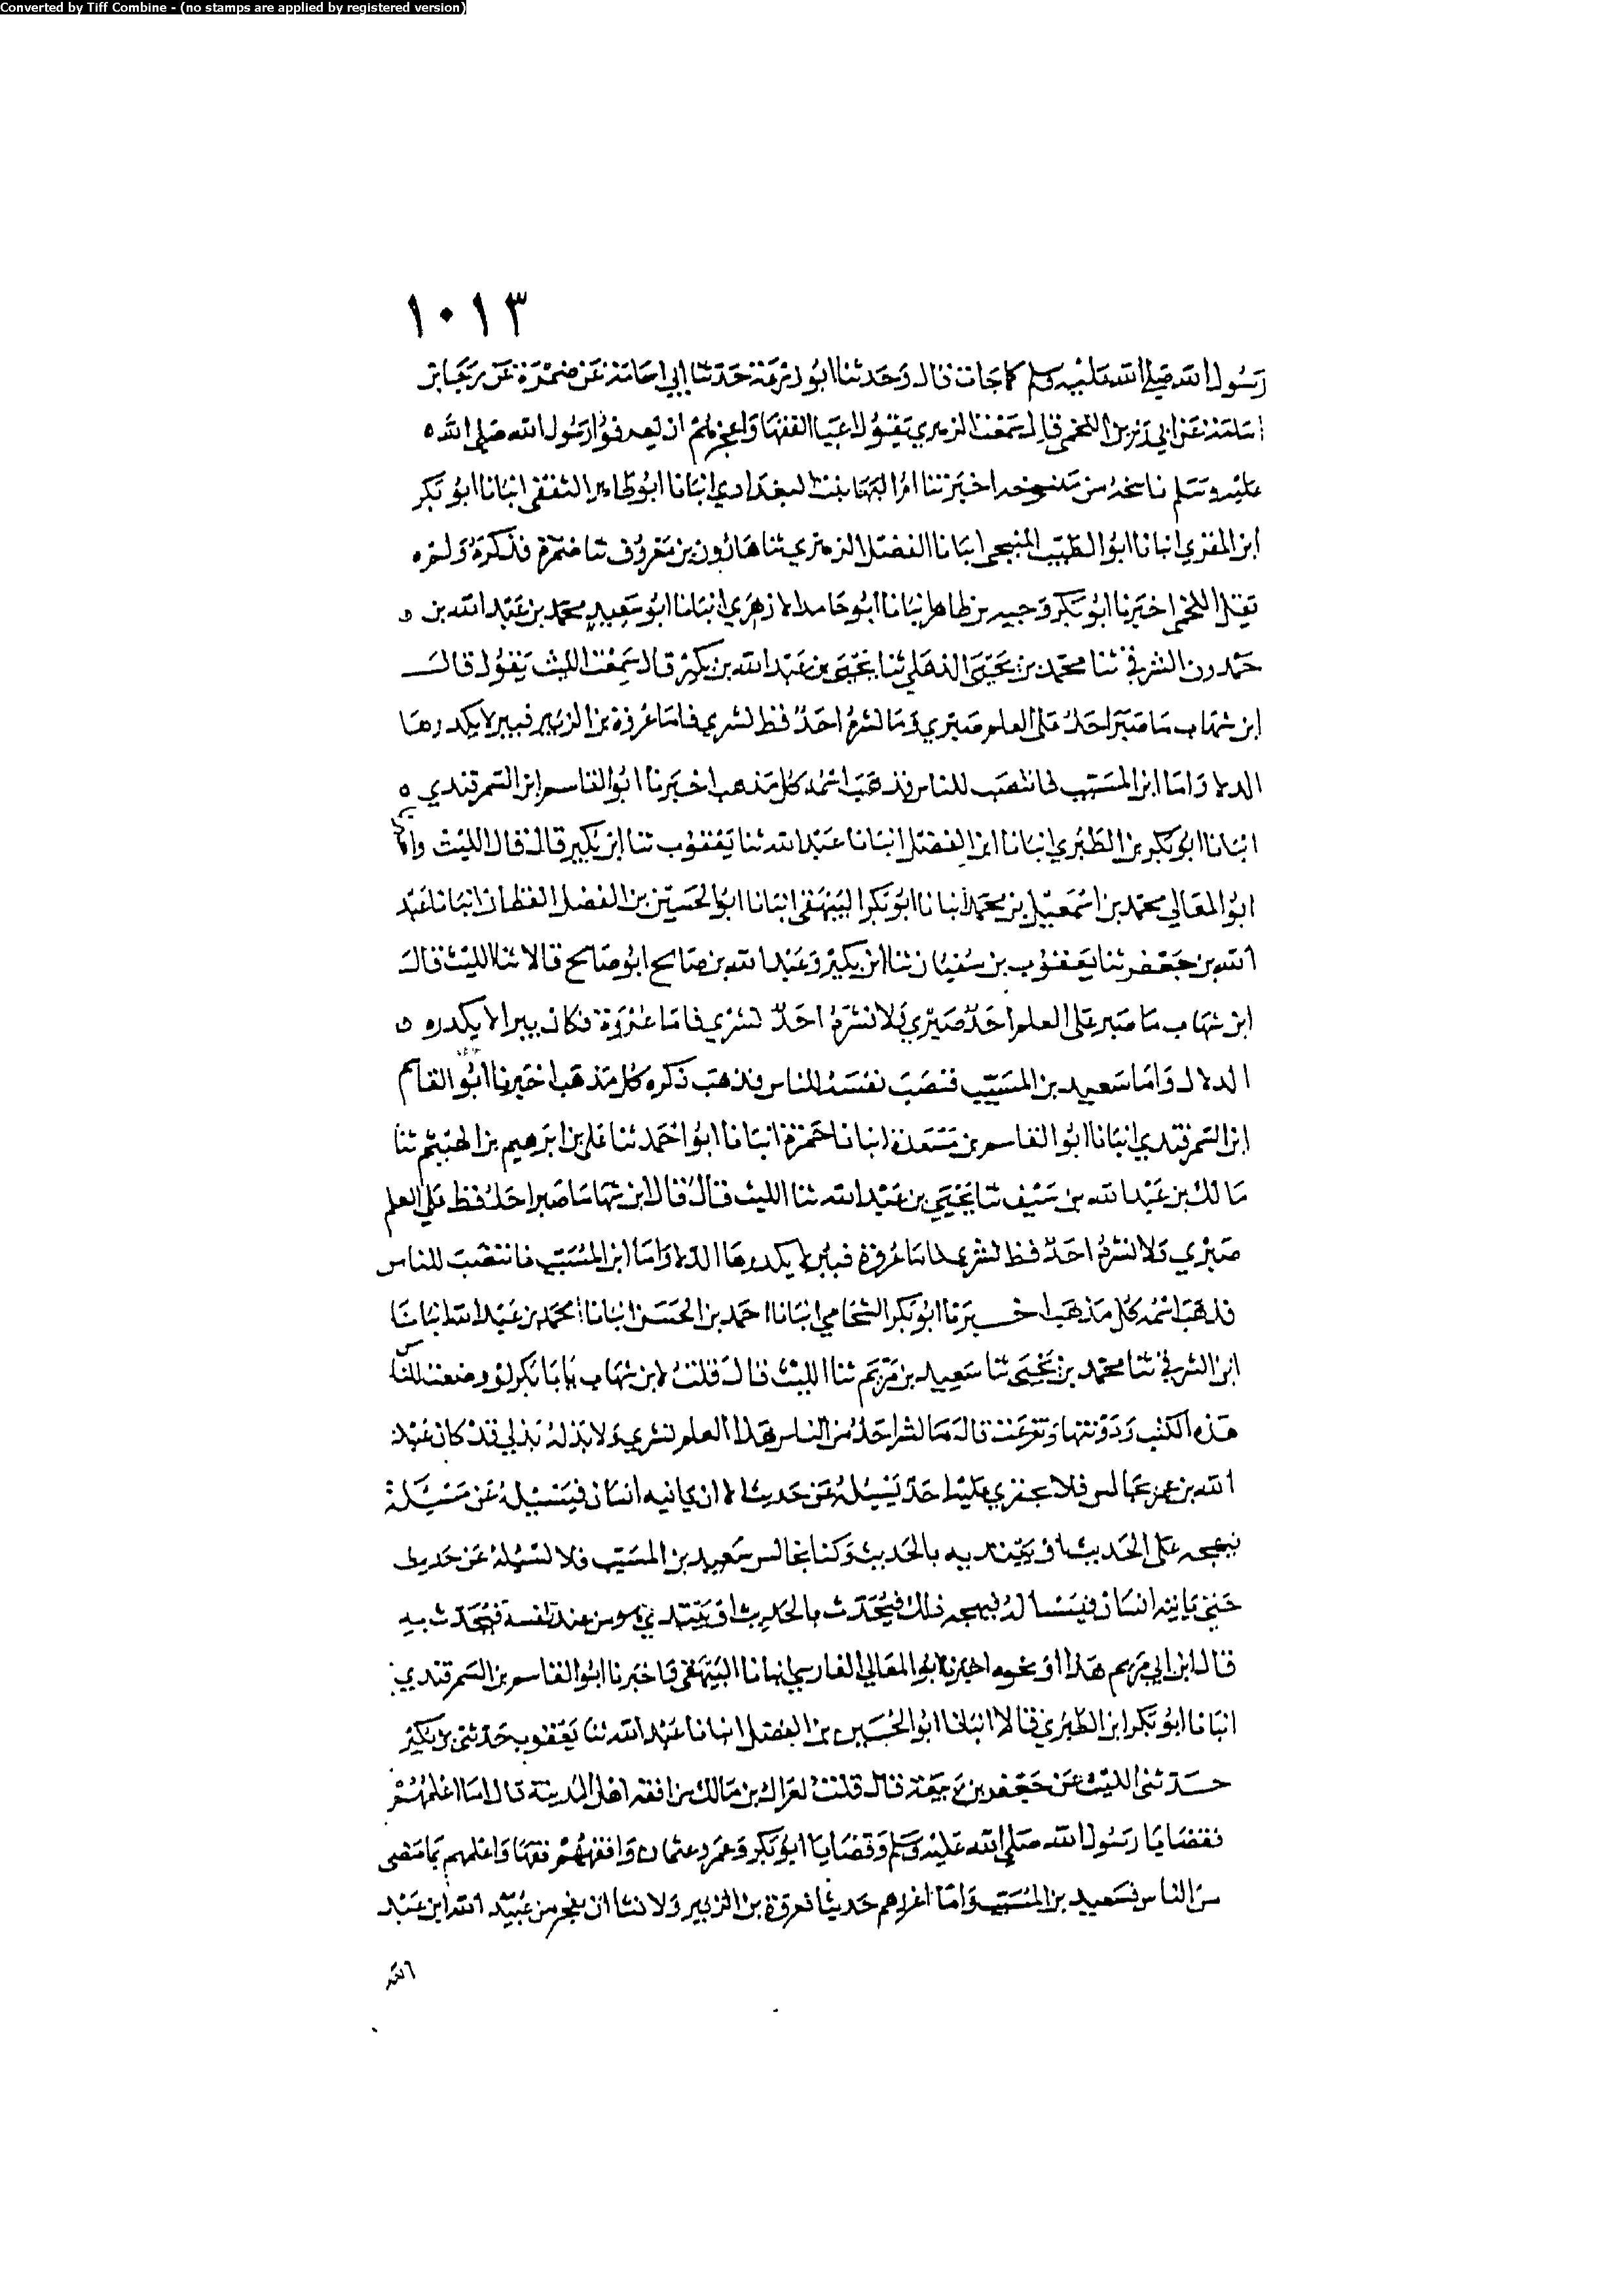 Converted by Tiff Combine - (no stamps are applied by registered version)
١٠١٣
رسول الله صلى الله عليه وسلم كما جات قال وحدثنا ابو زرعة حدثنا ابن ابي اسامة عن ضمرة عن رجا بن
ابي سلمة عن ابي رزين اللخمي قال سمعت الزهري يقول اعيا الفقها واعجزهم ان يعرفوا رسول الله صلى الله
عليه وسلم ناسخه من منسوخه اخبرتنا ام البها بنت البغدادي انبانا ابو طاهر الثقفي انبانا ابو بكر
ابن المقري انبانا ابو الطيب المنبجي انبانا الفضل الزهري ثنا هارون بن معروف ثنا ضمرة فذكره ولم
يقل اللخمي اخبرنا ابو بكر وجيه بن طاهر انبانا ابو حامد الازهري انبانا ابو سعيد محمد بن عبد الله بن
حمدون الشرقي ثنا محمد بن يحيى الذهلي ثنا يحيى بن عبد الله بن بكير قال سمعت الليث يقول قال
ابن شهاب ما صبر احد على العلم صبري وما نشره احد قط نشري فاما عروة بن الزبير فبير لا يكدرها
الدلا واما ابن المسيب فانتصب للناس فذهب اسمه كل مذهب اخبرنا ابو القاسم ابن السمرقندي
انبانا ابو بكر بن الطبري انبانا ابن الفضل انبانا عبد الله ثنا يعقوب ثنا ابن بكير قال قال الليث وانا
ابو المعالي محمد بن اسمعيل بن محمد انبانا ابو بكر البيهقي انبانا ابو الحسين بن الفضل القطان انبانا عبد
الله بن جعفر ثنا يعقوب بن سفيان ثنا ابن بكير وعبد الله بن صالح ابو صالح قالا ثنا الليث قال
ابن شهاب ما صبر على العلم احد صبري ولا نشره احد نشري فاما عروة فكان بيرا لا يكدره
الدلا واما سعيد بن المسيب فنصب نفسه للناس فذهب ذكره كل مذهب اخبرنا ابو القاسم
ابن السمرقندي انبانا ابو القاسم بن مسعدة انبانا حمزة انبانا ابو احمد ثنا علي بن ابرهيم بن الهيثم ثنا
مالك بن عبد الله بن سيف ثنا يحيى بن عبد الله ثنا الليث قال قال ابن شهاب ما صبر احد قط على العلم
صبري ولا نشره احد قط نشري فاما عروة فبير لا يكدرها الدلا واما ابن المسيب فانتصب للناس
فذهب اسمه كل مذهب اخبرنا ابو بكر الشحامي انبانا احمد بن الحسن انبانا محمد بن عبد الله انبانا
ابن الشرقي ثنا محمد بن يحيى ثنا سعيد بن مريم ثنا الليث قال قلت لابن شهاب يا با بكر لو وضعت للناس
هذه الكتب ودونتها وتفرغت قال ما نشر احد من الناس هذا العلم نشري ولا بذله بذلي قد كان عبد
الله بن عمر يجالس فلا يجتري عليه احد يسئله عن حديث الا ان ياتيه انسان فيسئله عن مسئلة
فيهيجه على الحديث او يبتدئ به بالحديث وكنا نجالس سعيد بن المسيب فلا نسئله عن حديث
حتى ياتيه انسان فيسأله فيهيجه ذلك فيحدث بالحديث او يبتدئ هو من عند نفسه فيحدث به
قال ابن ابي مريم هذا او نحوه اخبرنا ابو المعالي الفارسي انبانا البيهقي واخبرنا ابو القاسم بن السمرقندي
انبانا ابو بكر ابن الطبري قالا انبانا ابو الحسين بن الفضل انبانا عبد الله ثنا يعقوب حدثني بن بكير
حدثني الليث عن جعفر بن ربيعة قال قلت لعراك بن مالك من افقه اهل المدينة قال اما اعلمهم
بقضايا رسول الله صلى الله عليه وسلم وقضايا ابو بكر وعمر وعثمان وافقههم فقها واعلمهم بما مضى
من الناس فسعيد بن المسيب واما اغزرهم حديثا فعروة بن الزبير ولا نشا ان تفجر من عبيد الله ابن عبد
الله